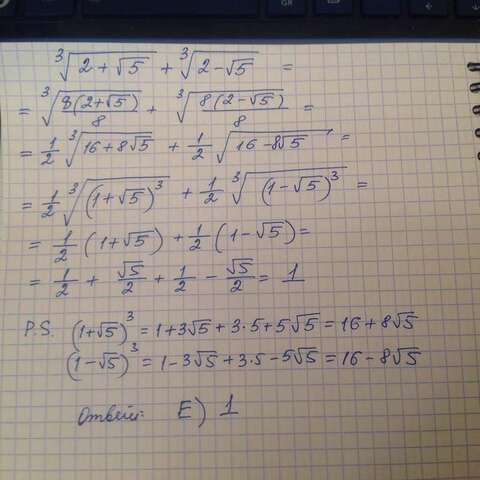 ∛(2 + √5) + ∛(2 − √5) =
= ∛(8(2+√5)/8) + ∛(8(2−√5)/8) =
= 1/2 ∛(16 + 8√5) + 1/2 √(16 − 8√5) =
= 1/2 ∛((1+√5)³) + 1/2 ∛((1−√5)³) =
= 1/2 (1+√5) + 1/2 (1−√5) =
= 1/2 + √5/2 + 1/2 − √5/2 = 1
P.S. (1+√5)³ = 1+3√5+3·5+5√5 = 16+8√5
(1−√5)³ = 1−3√5+3·5−5√5 = 16−8√5
Ответ: E) 1